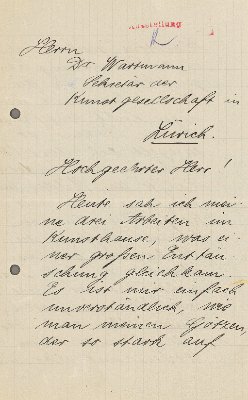 Ausstellung
Herrn
Dr Wartmann
Sekretär der
Kunstgesellschaft in
Zürich.
Hochgeehrter Herr!
Heute sah ich mei-
ne drei Arbeiten im
Kunsthause, was ei-
ner großen Enttäu-
schung gleichkam.
Es ist mir einfach
unverständlich, wie
man meinen Götzen,
der so stark auf